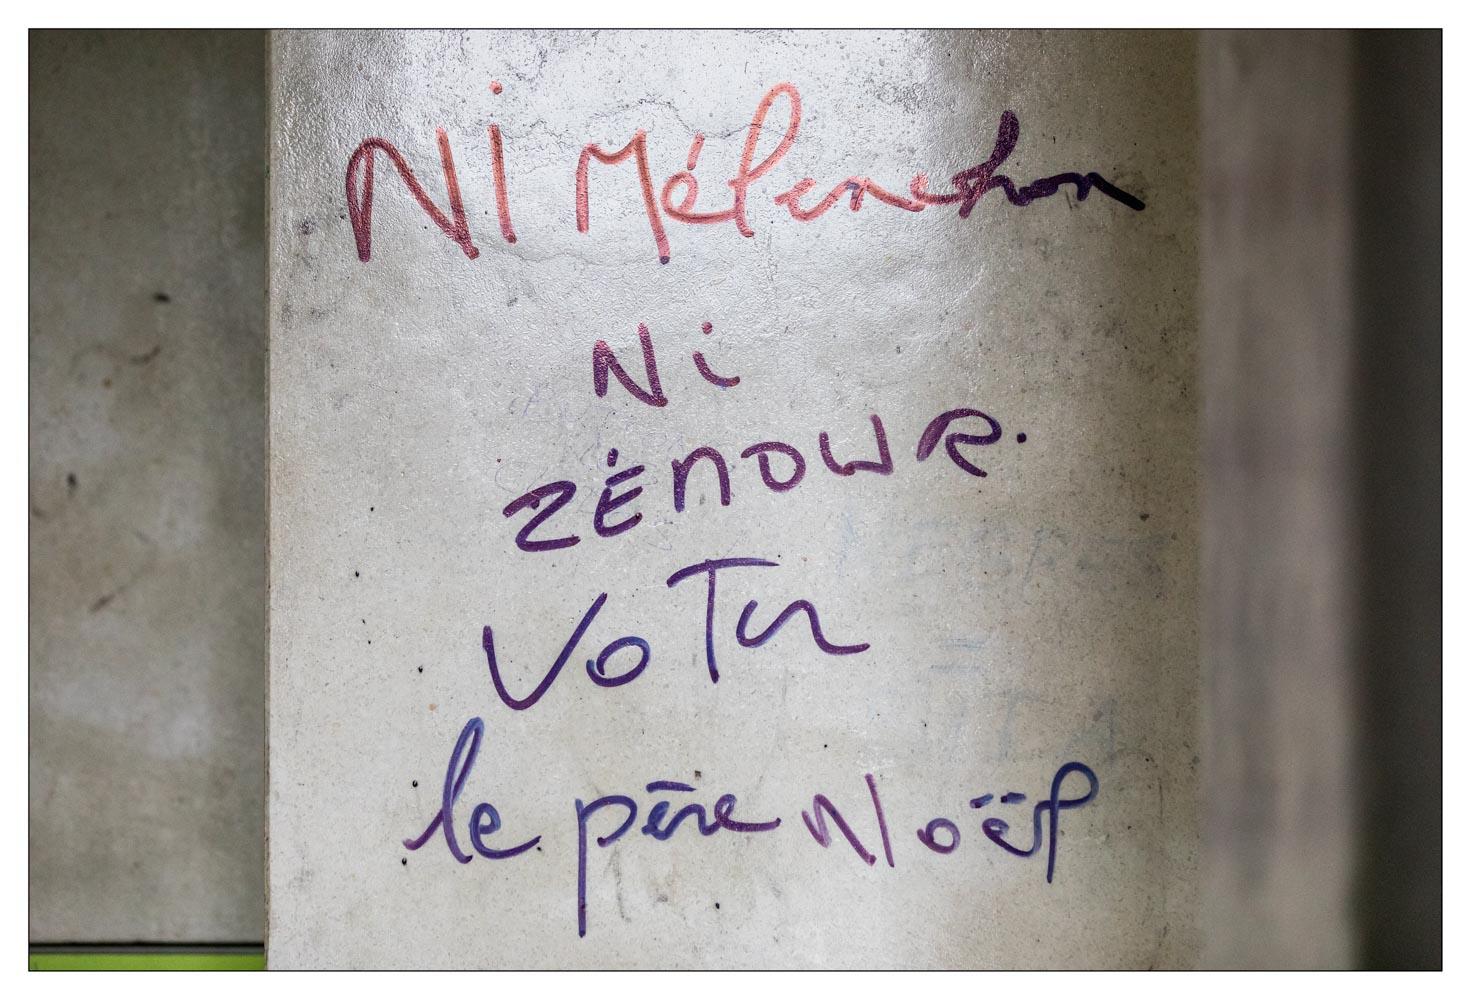 Ni Mélenchon
Ni
ZÉMOUR.
VOTER
le père Noël